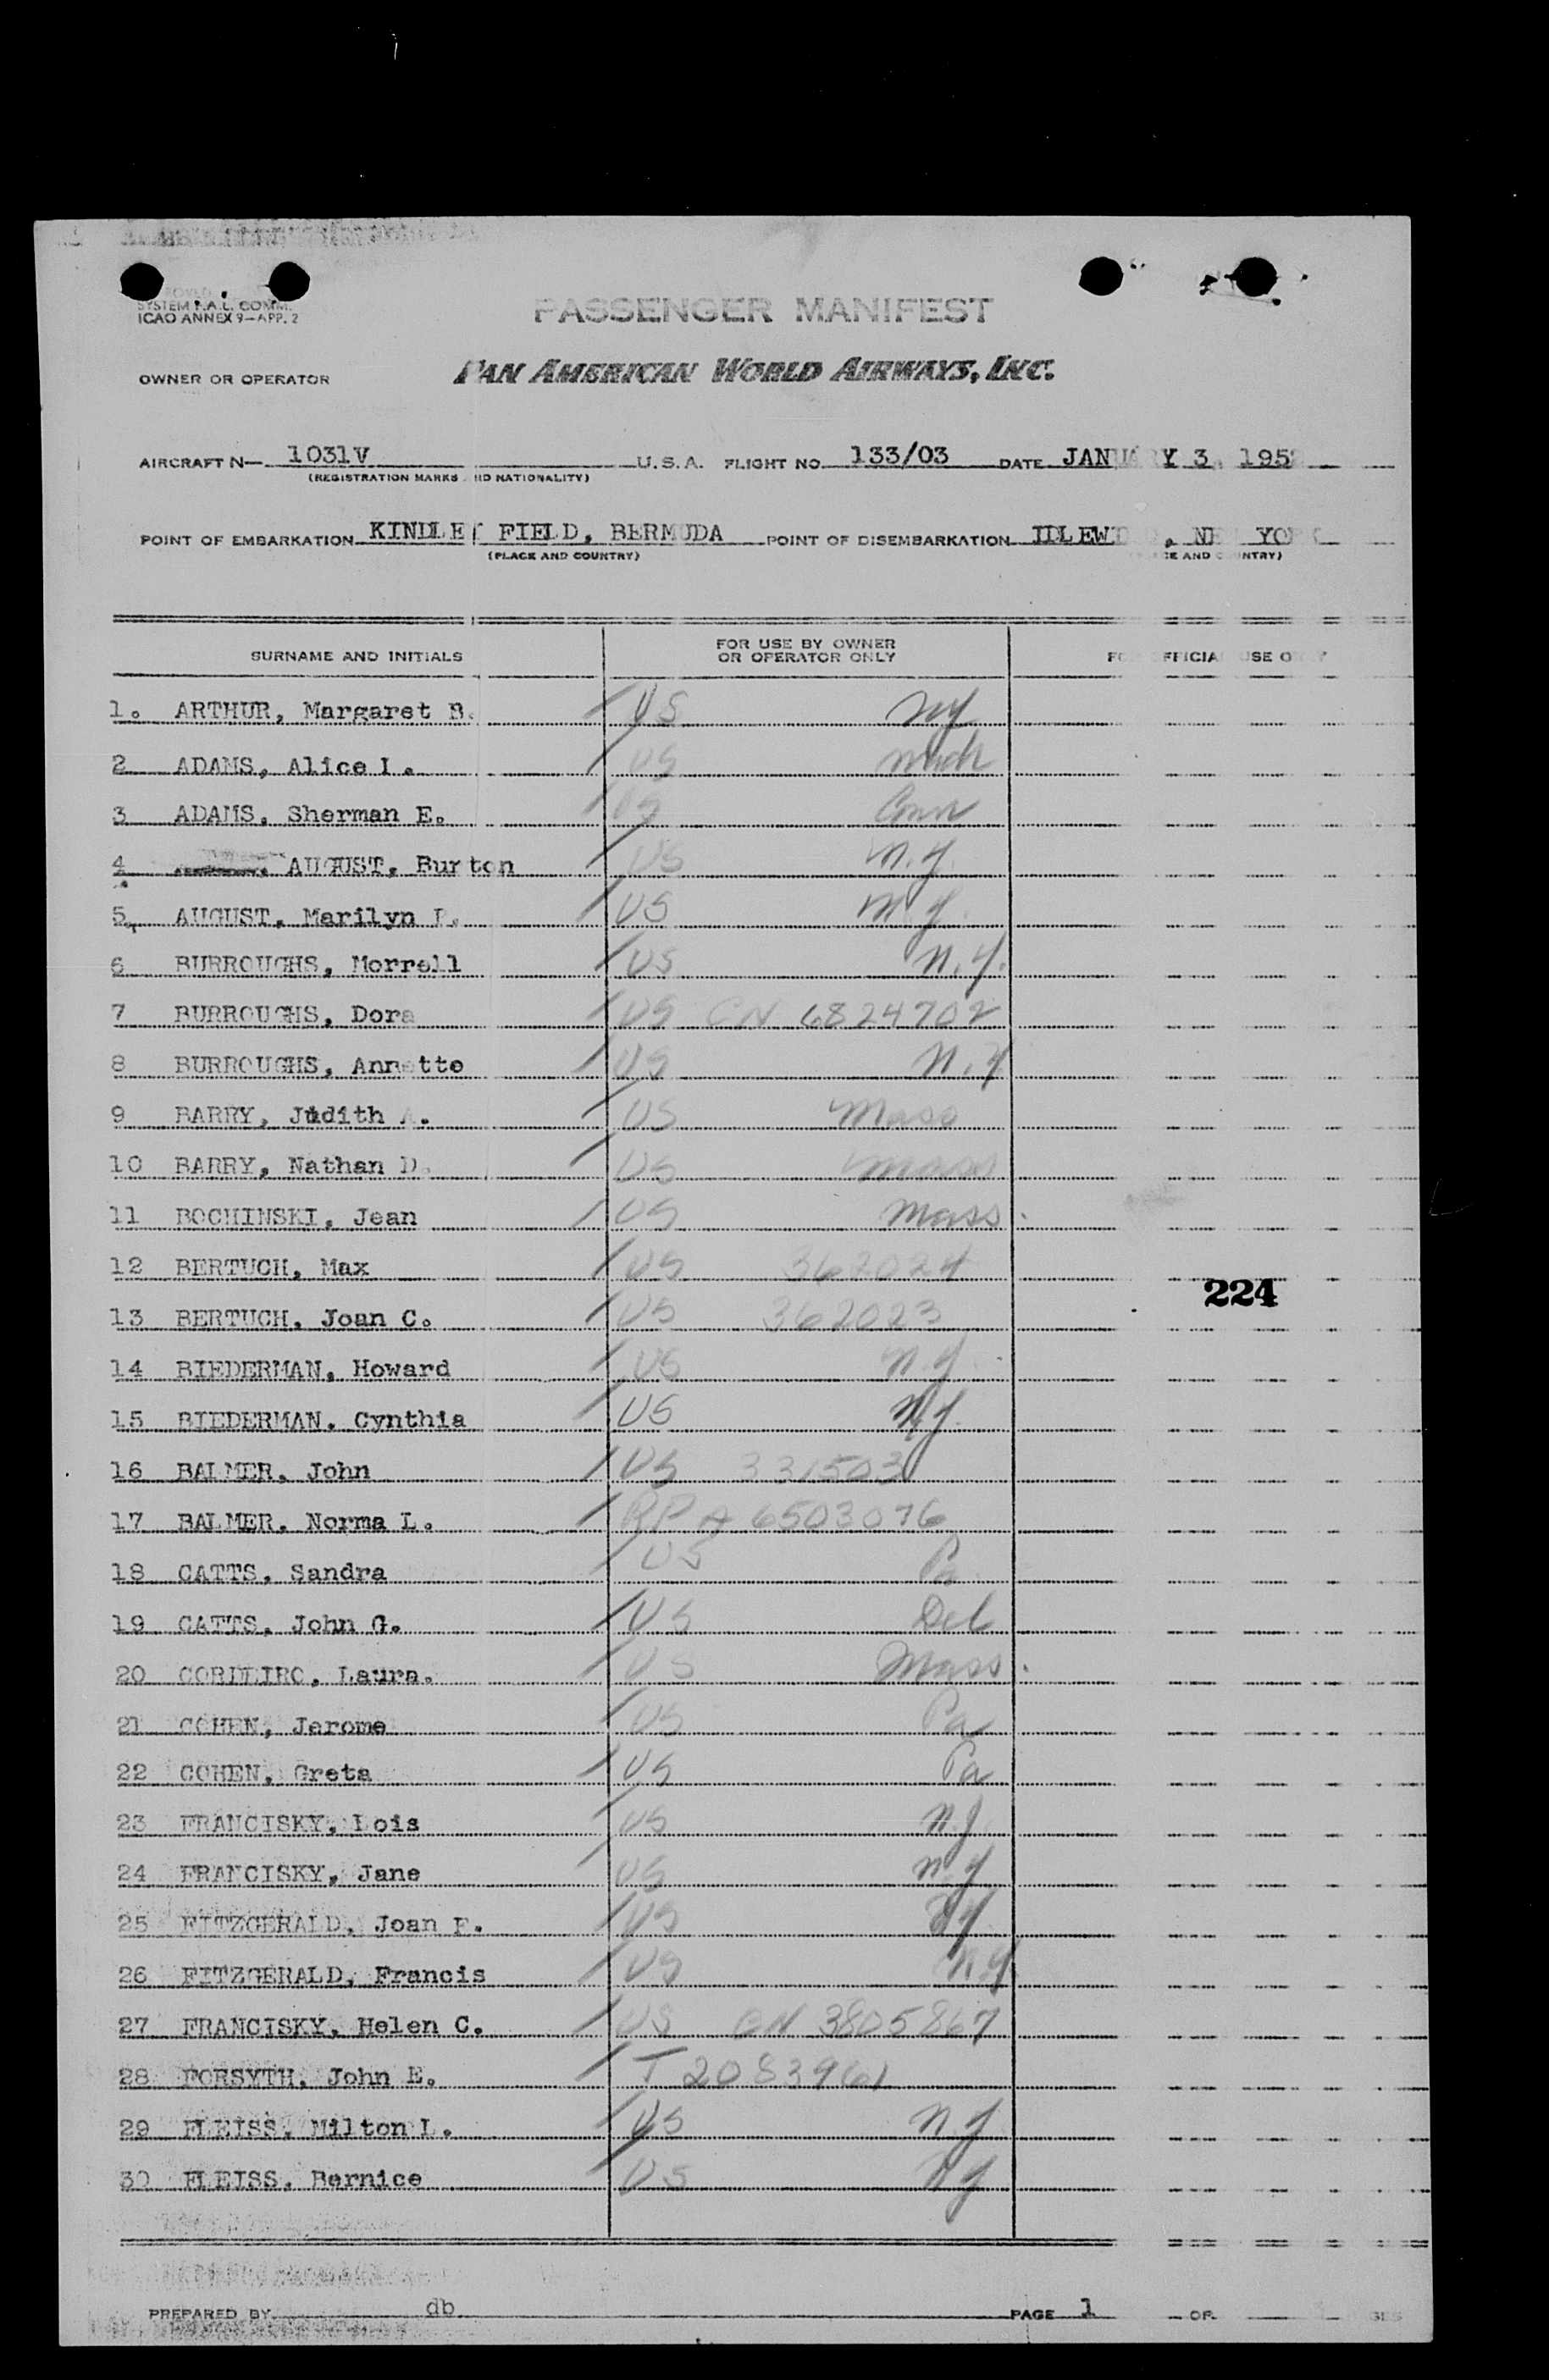 SYSTEM F.A.L. COMM.
ICAO ANNEX 9—APP. 2
PASSENGER MANIFEST
OWNER OR OPERATOR PAN AMERICAN WORLD AIRWAYS, INC.
AIRCRAFT N— 1031V U.S.A. FLIGHT NO. 133/03 DATE JANUARY 3, 195
(REGISTRATION MARKS AND NATIONALITY)
POINT OF EMBARKATION KINDLEY FIELD, BERMUDA POINT OF DISEMBARKATION IDLEWILD, NEW YORK
(PLACE AND COUNTRY) (PLACE AND COUNTRY)
SURNAME AND INITIALS FOR USE BY OWNER OR OPERATOR ONLY FOR OFFICIAL USE ONLY
1. ARTHUR, Margaret B. US NY
2 ADAMS, Alice I. US Mich
3 ADAMS, Sherman E. US Conn
4 AUGUST, Burton US N.Y.
5. AUGUST, Marilyn L. US N.Y.
6 BURROUGHS, Morrell US N.Y.
7 BURROUGHS, Dora US CN 6824702
8 BURROUGHS, Annette US N.Y
9 BARRY, Judith A. US Mass
10 BARRY, Nathan D. US Mass
11 BOCHINSKI, Jean US Mass.
12 BERTUCH, Max US 362024
13 BERTUCH, Joan C. US 362023
14 BIEDERMAN, Howard US N.Y.
15 BIEDERMAN, Cynthia US N.Y.
16 BALMER, John US 331503
17 BALMER, Norma L. RP A 6503076
18 CATTS, Sandra US Pa
19 CATTS, John G. US Del
20 CORDEIRO, Laura. US Mass.
21 COHEN, Jerome US Pa
22 COHEN, Greta US Pa
23 FRANCISKY, Lois US N.J.
24 FRANCISKY, Jane US N.Y
25 FITZGERALD, Joan F. US NY
26 FITZGERALD, Francis US N.Y.
27 FRANCISKY, Helen C. US CN 3805867
28 FORSYTH, John E. T 2083961
29 FLEISS, Milton L. US NY
30 FLEISS, Bernice US NY
224
PREPARED BY db PAGE 1 OF